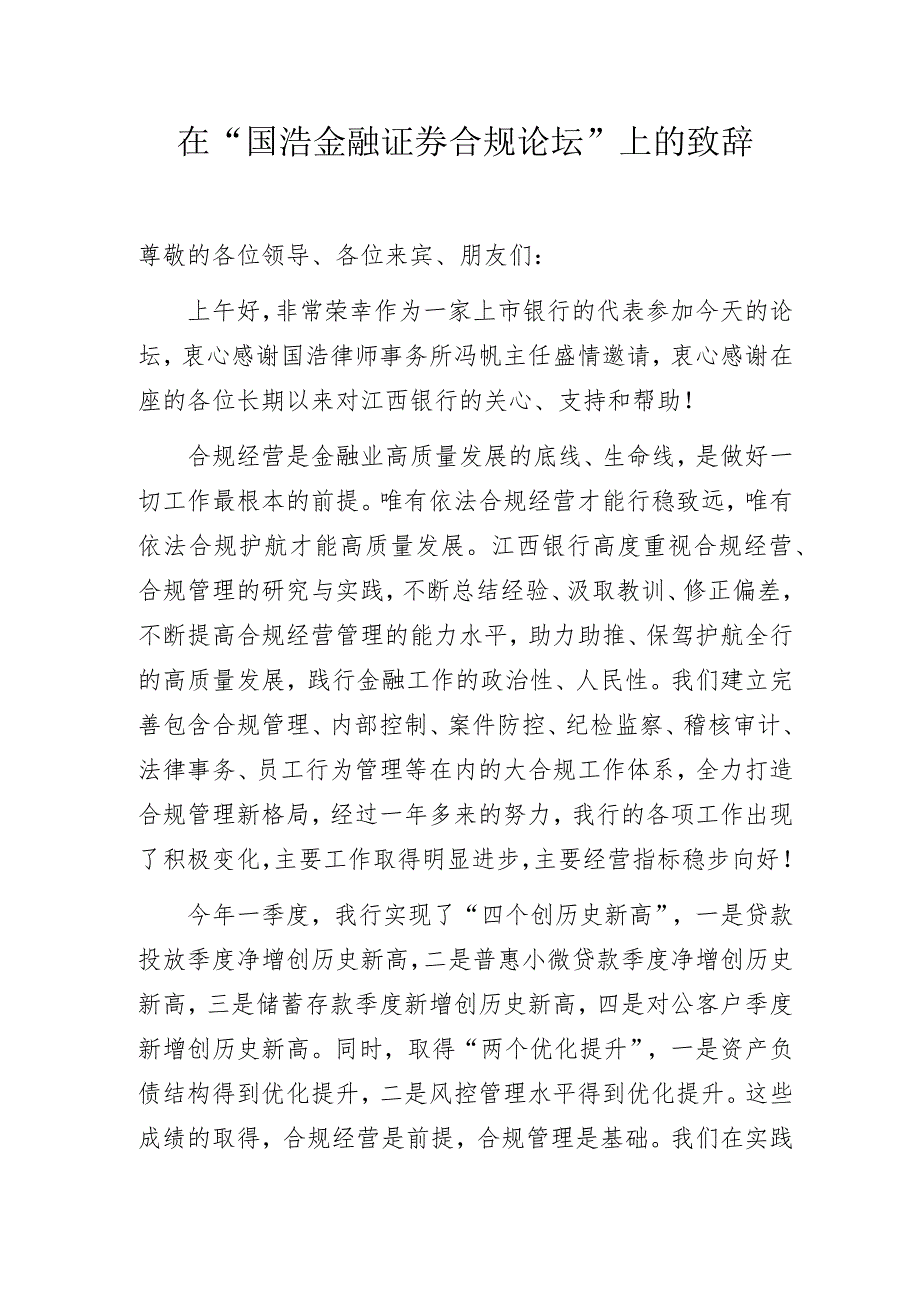 在“国浩金融证券合规论坛”上的致辞
尊敬的各位领导、各位来宾、朋友们：
上午好，非常荣幸作为一家上市银行的代表参加今天的论
坛，衷心感谢国浩律师事务所冯帆主任盛情邀请，衷心感谢在
座的各位长期以来对江西银行的关心、支持和帮助！
合规经营是金融业高质量发展的底线、生命线，是做好一
切工作最根本的前提。唯有依法合规经营才能行稳致远，唯有
依法合规护航才能高质量发展。江西银行高度重视合规经营、
合规管理的研究与实践，不断总结经验、汲取教训、修正偏差，
不断提高合规经营管理的能力水平，助力助推、保驾护航全行
的高质量发展，践行金融工作的政治性、人民性。我们建立完
善包含合规管理、内部控制、案件防控、纪检监察、稽核审计、
法律事务、员工行为管理等在内的大合规工作体系，全力打造
合规管理新格局，经过一年多来的努力，我行的各项工作出现
了积极变化，主要工作取得明显进步，主要经营指标稳步向好！
今年一季度，我行实现了“四个创历史新高”，一是贷款
投放季度净增创历史新高，二是普惠小微贷款季度净增创历史
新高，三是储蓄存款季度新增创历史新高，四是对公客户季度
新增创历史新高。同时，取得“两个优化提升”，一是资产负
债结构得到优化提升，二是风控管理水平得到优化提升。这些
成绩的取得，合规经营是前提，合规管理是基础。我们在实践